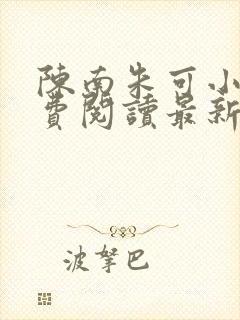 陳南朱可小
費閱讀最新
波拏巴